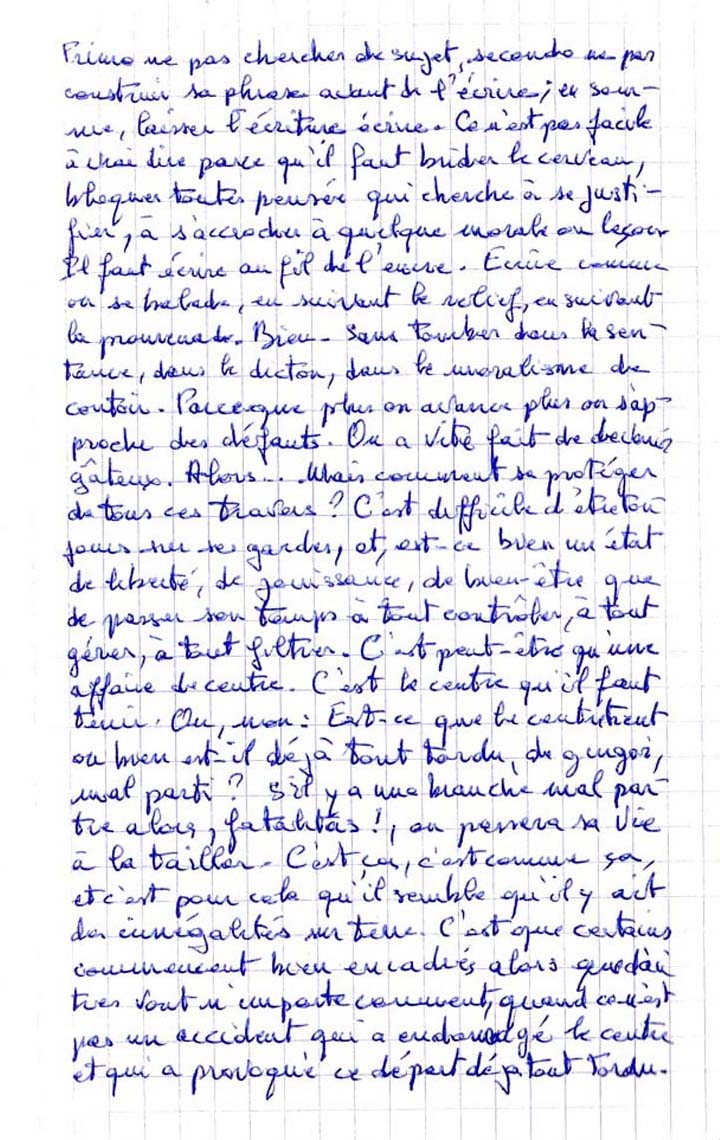 Primo ne pas chercher de sujet, secundo ne pas
construire sa phrase avant de l'écrire; en som-
me, laisser l'écriture écrire. Ce n'est pas facile
à vrai dire parce qu'il faut brider le cerveau,
bloquer toutes pensée qui cherche à se justi-
fier, à s'accrocher à quelque morale ou leçon
Il faut écrire au fil de l'encre. Ecrire comme
on se balade, en suivant le relief, en suivant
la promenade. Bien. Sans tomber dans la sen-
tence, dans le dicton, dans le moralisme de
comtoir. Parce que plus on avance plus on s'ap-
proche des défauts. On a vite fait de devenir
gâteux. Alors... Mais comment se protéger
de tous ces travers? C'est difficile d'être tou
jours sur ses gardes, et, est-ce bien un état
de liberté, de jouissance, de bien-être que
de passer son temps à tout contrôler, à tout
gérer, à tout filtrer. C'est peut-être qu'une
affaire de centre. C'est le centre qu'il faut
tenir. Ou, non: Est-ce que le centre tient
ou bien est-il déjà tout tordu, de guingoi,
mal parti? S'il y a une branche mal par-
tie alors, fatalitas!, on passera sa vie
à la tailler. C'est ça, c'est comme ça,
et c'est pour cela qu'il semble qu'il y ait
des innégalités sur terre. C'est que certains
commencent bien encadrés alors que d'au
tres vont n'importe comment, quand ce n'est
pas un accident qui a endomagé le centre
et qui a provoqué ce départ déjà tout tordu.